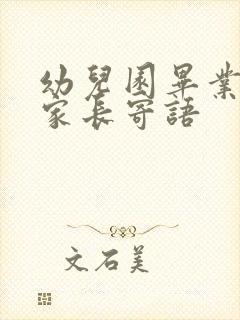 幼兒園畢業
家長寄語
文石美